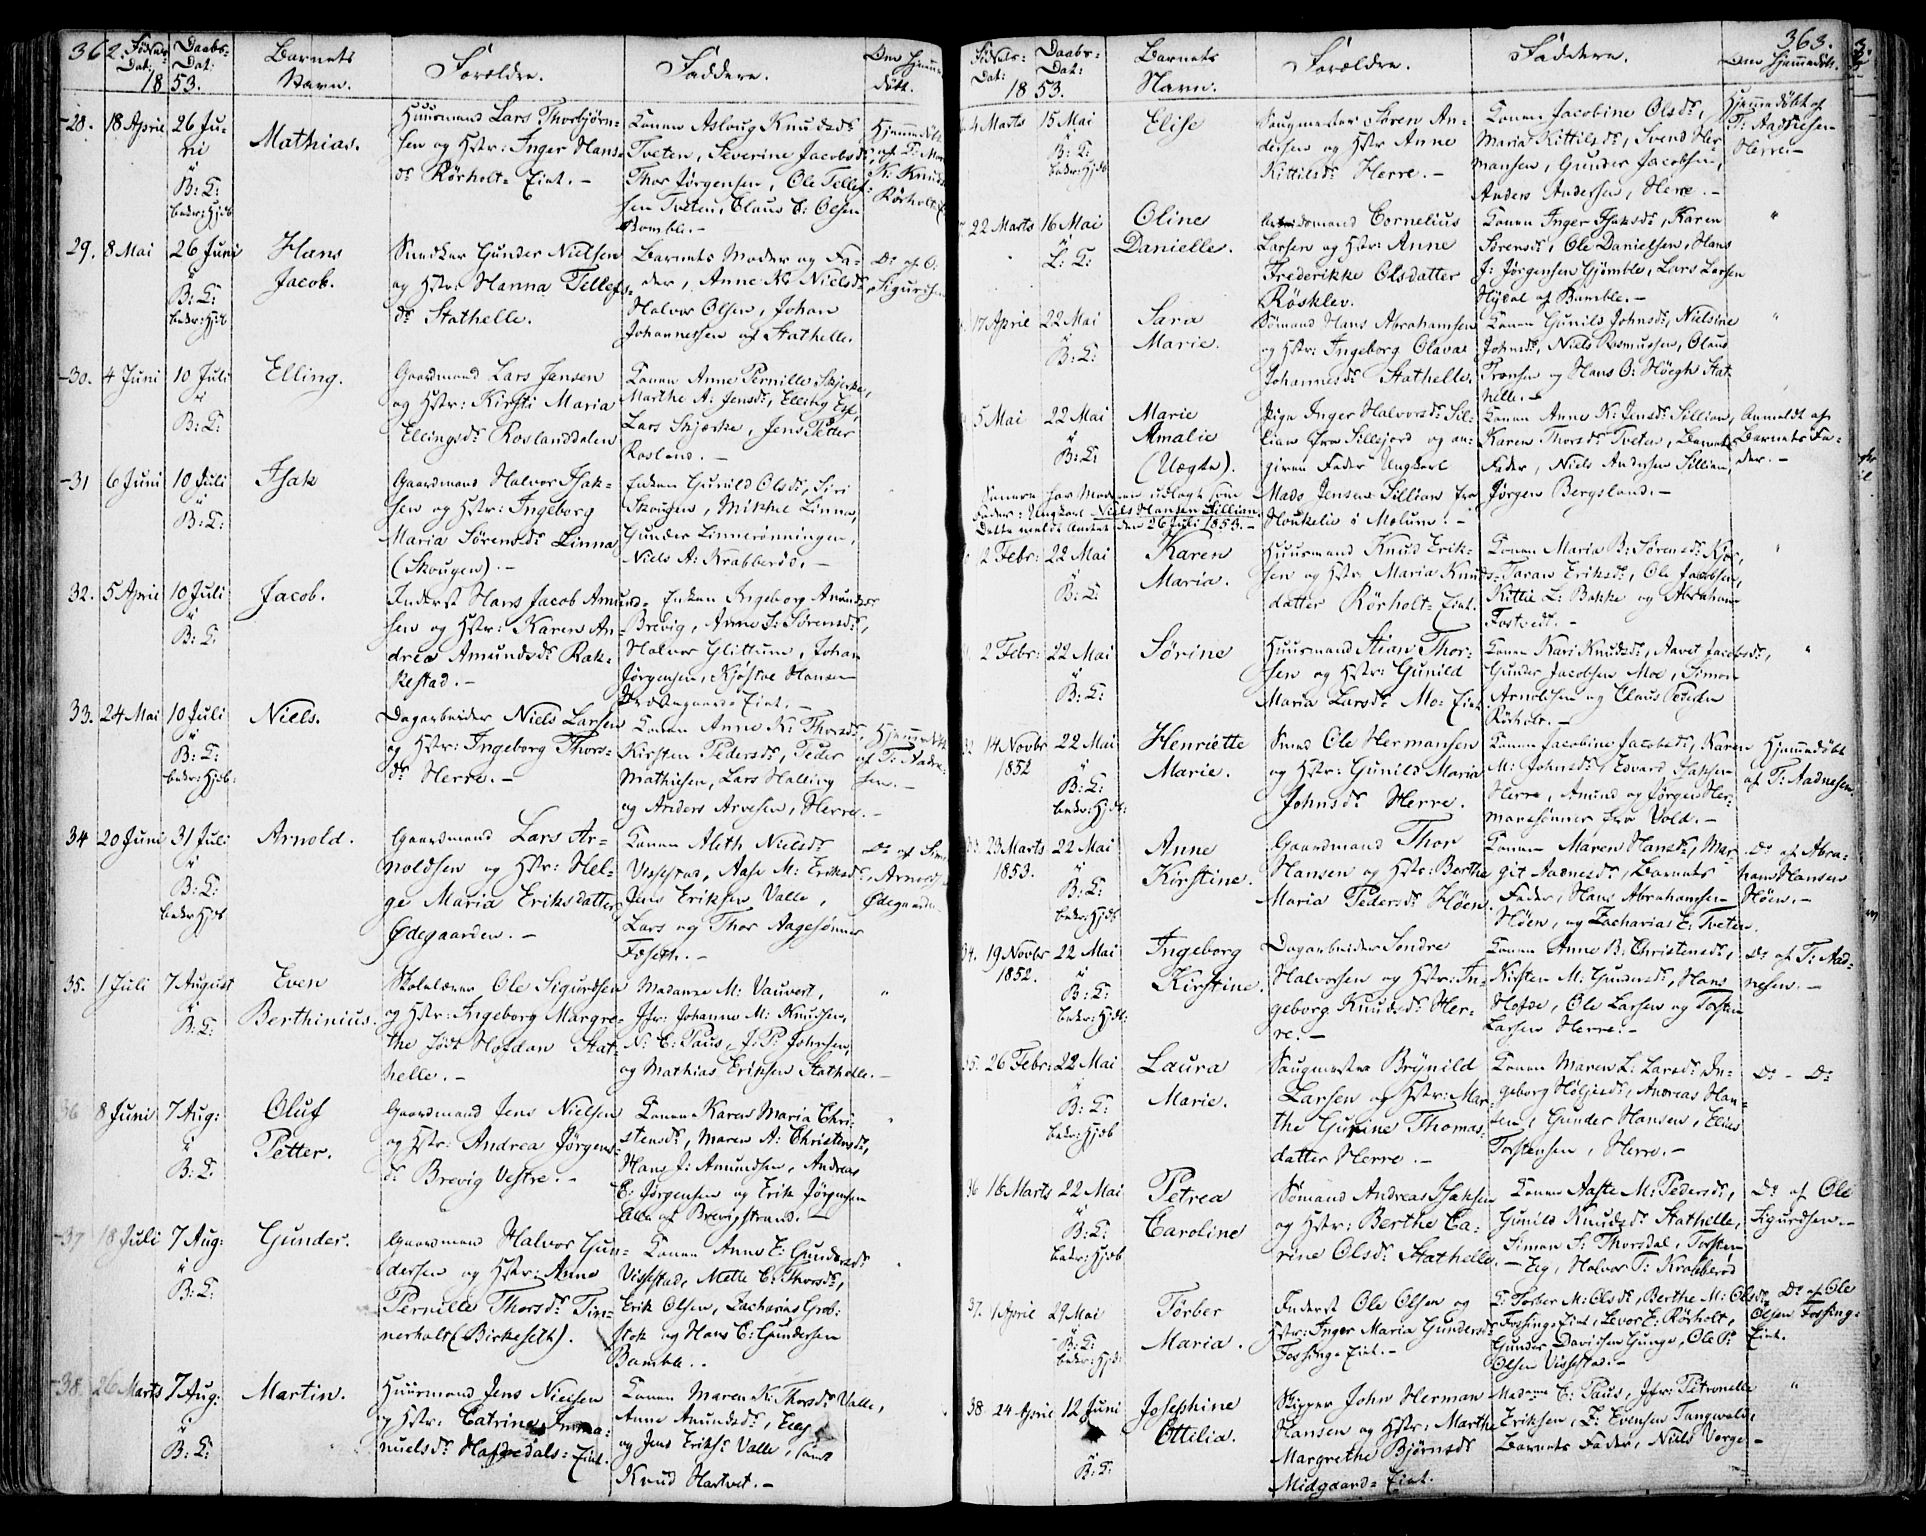 362.
Fødsels-
Dat:
Daabs-
Dat:
1853.
Barnets
Navn.
Forældre.
Faddere.
Om Hjemme
døbt.
28.
18 April
26 Ju-
ni
i
B: K:
bekr: Hjdb
Mathias.
Huusmand Lars Thorbjørn-
sen og Hstr: Inger Hans-
dr Rörholt-Eiet. -
Konen Asloug Knudsdr
Tveten, Severine Jacobsdr
Thor Jørgensen, Ole Tellef-
sen Tveten, Claus C: Olsen
Bamble. -
Hjemmedøbt
af
K: Knuds
Rörholt
29.
8 Mai
26 Juni
i
B: K:
bekr: Hjdb
Hans
Jacob.
Snedker Gunder Nielsen
og Hstr: Hanna Tellefs-
dr Stathelle.
Barnets Moder og Fa-
der, Anne N: Nielsdr
Halvor Olsen, Johan
Johannessen af Stathelle.
Do af O:
Sigurdsen
30.
4 Juni
10 Juli
i
B: K:
Elling.
Gaardmand Lars Jensen
og Hstr: Kirsti Maria
Ellingsdr Roslanddalen
Konen Anne Pernille Skjerke,
Marthe A: Jensdr, Elling Eie,
Lars Skjerke, Jens Petter
Rosland. -
31
6 Juni
10 Juli
i
B: K:
Isak
Gaardmand Halvor Isak-
sen og Hstr: Ingeborg
Maria Sörensdr Linna
(Skougen). -
Enken Gunild Olsdr, Siri
Skougen, Mikkel Linna,
Gunder Linnerönningen,
Niels A: Krabberød. -
32.
5 April
10 Juli
i
B: K:
Jacob.
Inderst Hans Jacob Amund-
sen og Hstr: Karen An-
drea Amundsdr Rak-
kestad. -
Enken Ingeborg Amundsdr
Brevig, Anne S: Sörensdr,
Halvor Glittum, Johan
Jørgensen, Kjöstol Hansen
33.
24 Mai
10 Juli
i
B: K:
bekr: Hjdb:
Niels.
Dagarbeider Niels Larsen
og Hstr: Ingeborg Thors-
dr Herre. -
Konen Anne N: Thorsdr,
Kirsten Pedersdr, Peder
Mathisen, Lars Halling
og Anders Arvesen, Herre. -
Hjemmedöbt
af T: Aadne-
sen. -
34
20 Juni
31 Juli
i
B: K:
bekr: Hjdb
Arnold.
Gaardmand Lars Ar-
noldsen og Hstr: Hel-
ge Maria Eriksdatter
Ødegaarden. -
Konen Aleth Nielsdr
Vissestad, Aase M: Eriksdr
Jens Eriksen Valle,
Lars og Thor Aagesönner
Foseth. -
Do af
Arnolds
Ødegaarden
35.
1 Juli
7 August
i
B: K:
Even
Berthinius.
Skolelærer Ole Sigurdsen
og Hstr: Ingeborg Margre-
the födt Hofdan Stat-
helle. -
Madame M: Vauvert,
Jfr: Johanne M: Knudsen,
N: C: Paus, J: P: Johnsen,
og Mathias Eriksen Stathelle. -
"
36
8 Juni
7 Aug:
i
B: K:
Oluf
Petter.
Gaardmand Jens Nielsen
og Hstr: Andrea Jörgens-
dr Brevig Vestre. -
Konen Karen Maria Chri-
stensdr, Maren A: Christensdr,
Hans J: Amundsen, Andreas
C: Jørgensen og Erik Jørgensen
Alle af Brevigstrand. -
37
18 Juli
7 Aug:
i
B: K:
Gunder.
Gaardmand Halvor Gun-
dersen og Hstr: Anne
Pernille Thorsdr Tin-
nerholt (Birkeseth).
Konen Anne E: Gundersdr
Vissestad, Mette C: Thorsdr,
Erik Olsen, Zacharias Grob-
stok og Hans C: Gundersen
Bamble. -
38.
26 Marts
7 Aug:
i
B: K:
Martin.
Huusmand Jens Nielsen
og Hstr: Catrine Imma-
nuelsdr Hafsedals-Eiet.
Konen Maren K: Thorsdr Valle,
Anne Amundsdr,
og Jens Eriks: Valle, samt
Knud Hartvet. -
363.
Fødsels-
Dat:
Daabs-
Dat:
1853.
Barnets
Navn.
Forældre.
Faddere.
Om Hjemmedöbt.
4 Marts
15 Mai
i
B: K:
bekr: Hjdb
Elise
Saugmester Sören An-
dersen og Hstr Anne
Kittilsdr Herre. -
Konen Jacobine Olsdr,
Maria Kittilsdr, Svend Her-
mansen, Gunder Jacobsen,
Anders Andersen, Herre. -
Hjemmedöbt af
T: Aadnesen
Herre. -
22 Marts
16 Mai
i
L: K:
Oline
Danielle.
Cornelius
Larsen og Hstr: Anne
Frederikke Olsdatter
Rösklev.
Konen Inger Isaksdr, Karen
Sörensdr, Ole Danielsen, Hans
J: Jörgensen Gjömble, Lars Larsen
Hydal af Bamble. -
"
17 April
22 Mai
i
B: K:
Sara
Marie.
Sömand Hans Abrahamsen
og Hstr: Ingeborg Olava
Johannesdr Stathelle.
Konen Gunild Johnsdr, Nielsine
Johnsdr, Niels Rasmussen, Olaus
Tronsen og Hans O: Höegh Stat-
helle. -
"
5 Mai
22 Mai
i
B: K:
Marie
Amalie
(Uægte).
Pige Inger Halvorsdr Sil-
lian fra Sillejord og an-
given Fader Ungkarl
Mads Jensen Sillian fra
Houkelie i Molum. -
Konen Anne K: Jensdr Sillian,
Karen Thorsdr Tveten, Barnets
Fader, Niels Andersen Sillian,
Jörgen Bergsland. -
Anmeldt af
Barnets Fa-
der. -
Senere har Moderen udlagt som
Fader: Ungkarl Niels Hansen Sillian.
Dette meldt Amtet den 26 Juli 1853. -
2 Febr:
22 Mai
i
B: K:
Karen
Maria.
Huusmand Knud Erik-
sen og Hstr Maria Knuds-
datter Rörholt-Eiet.
Konen Maria B: Sörensdr Kjær,
Taran Eriksdr, Ole Jacobsen,
Kittil L: Bakke og Abraham
Tostvedt. -
"
2 Febr:
22 Mai
i
B: K:
Sörine
Huusmand Stian Thor-
sen og Hstr: Gunild
Maria Larsdr Mo-Eiet
Konen Kari Knudsdr, Aavet Jacobsdr,
Gunder Jacobsen Moe, Simon
Arnoldsen og Claus Teisen
Rörholt. -
"
14 Novbr
1852
22 Mai
i
B: K:
bekr: Hjdb:
Henriette
Marie.
Smed Ole Hermansen
og Hstr: Gunild Maria
Johnsdr Herre.
Konen Jacobine Jacobsdr, Karen
M: Johnsdr, Edvard Isaksen
Herre, Amund og Jörgen Her-
mansönner fra Vold. -
Hjemmedöbt
af T: Aadnesen.
23 Marts
1853.
22 Mai
i
B: K:
bekr: Hjdb
Anne
Kirstine.
Gaardmand Thor
Hansen og Hstr: Berthe
Maria Pedersdr Höen.
Konen Maren Hansdr, Mar-
git Aadnesdr, Barnets
Fader, Hans Abrahamsen
Höen, og Zacharias E: Tveten.
Do af Abra-
ham Hansen
Höen. -
34.
19 Novbr
1852.
22 Mai
i
B: K:
bekr: Hjdb:
Ingeborg
Kirstine.
Dagarbeider Sondre
Halvorsen og Hstr: In-
geborg Knudsdr Her-
re. -
Konen Anne B: Christensdr,
Kirsten M: Gundersdr, Hans
Hofde, Ole Larsen og Torsten
Larsen Herre. -
Do af T: Aad-
nesen. -
35.
26 Febr:
22 Mai
i
B: K:
bekr: Hjdb
Laura
Marie.
Saugmester Brynild
Larsen og Hstr: Mar-
the Gurine Thomas-
datter Herre. -
Konen Maren L: Larsdr In-
geborg Höljesdr, Andreas Han-
sen, Gunder Hansen, Elias
Torstensen, Herre. -
Do - Do
36
16 Marts
22 Mai
i
B: K:
bekr: Hjdb
Petrea
Caroline
Sömand Andreas Isaksen
og Hstr: Berthe Ca-
rine Olsdr Stathelle.
Konen Aaste M: Pedersdr,
Gunild Knudsdr Stathelle,
Simon S: Thorsdal, Torsten
Eeg, Halvor T: Krabberød
Do af Ole
Sigurdsen. -
37.
1 April
29 Mai
i
B: K:
bekr: Hjdb:
Törber
Maria.
Inderst Ole Olsen og
Hstr: Inger Maria Gundersdr
Fossing-Eiet. -
K: Torber M: Olsdr, Berthe M: Olsdr
Fossing-Eiet, Levor E: Rörholt,
Gunder Davidsen Hunge, Ole P:
Olsen Vissestad. -
Do af Ole
Olsen Fossing-
Eiet.
38.
24 April
12 Juni
i
B: K:
Josephine
Ottilia.
Skipper John Herman
Hansen og Hstr: Marthe
Margrethe Björnsdr
Midgaard-Eiet.
Madame C: Paus, Jfr: Petronelle
Eriksen, E: Evensen Tangvald,
Barnets Fader, Niels Vorge -
"